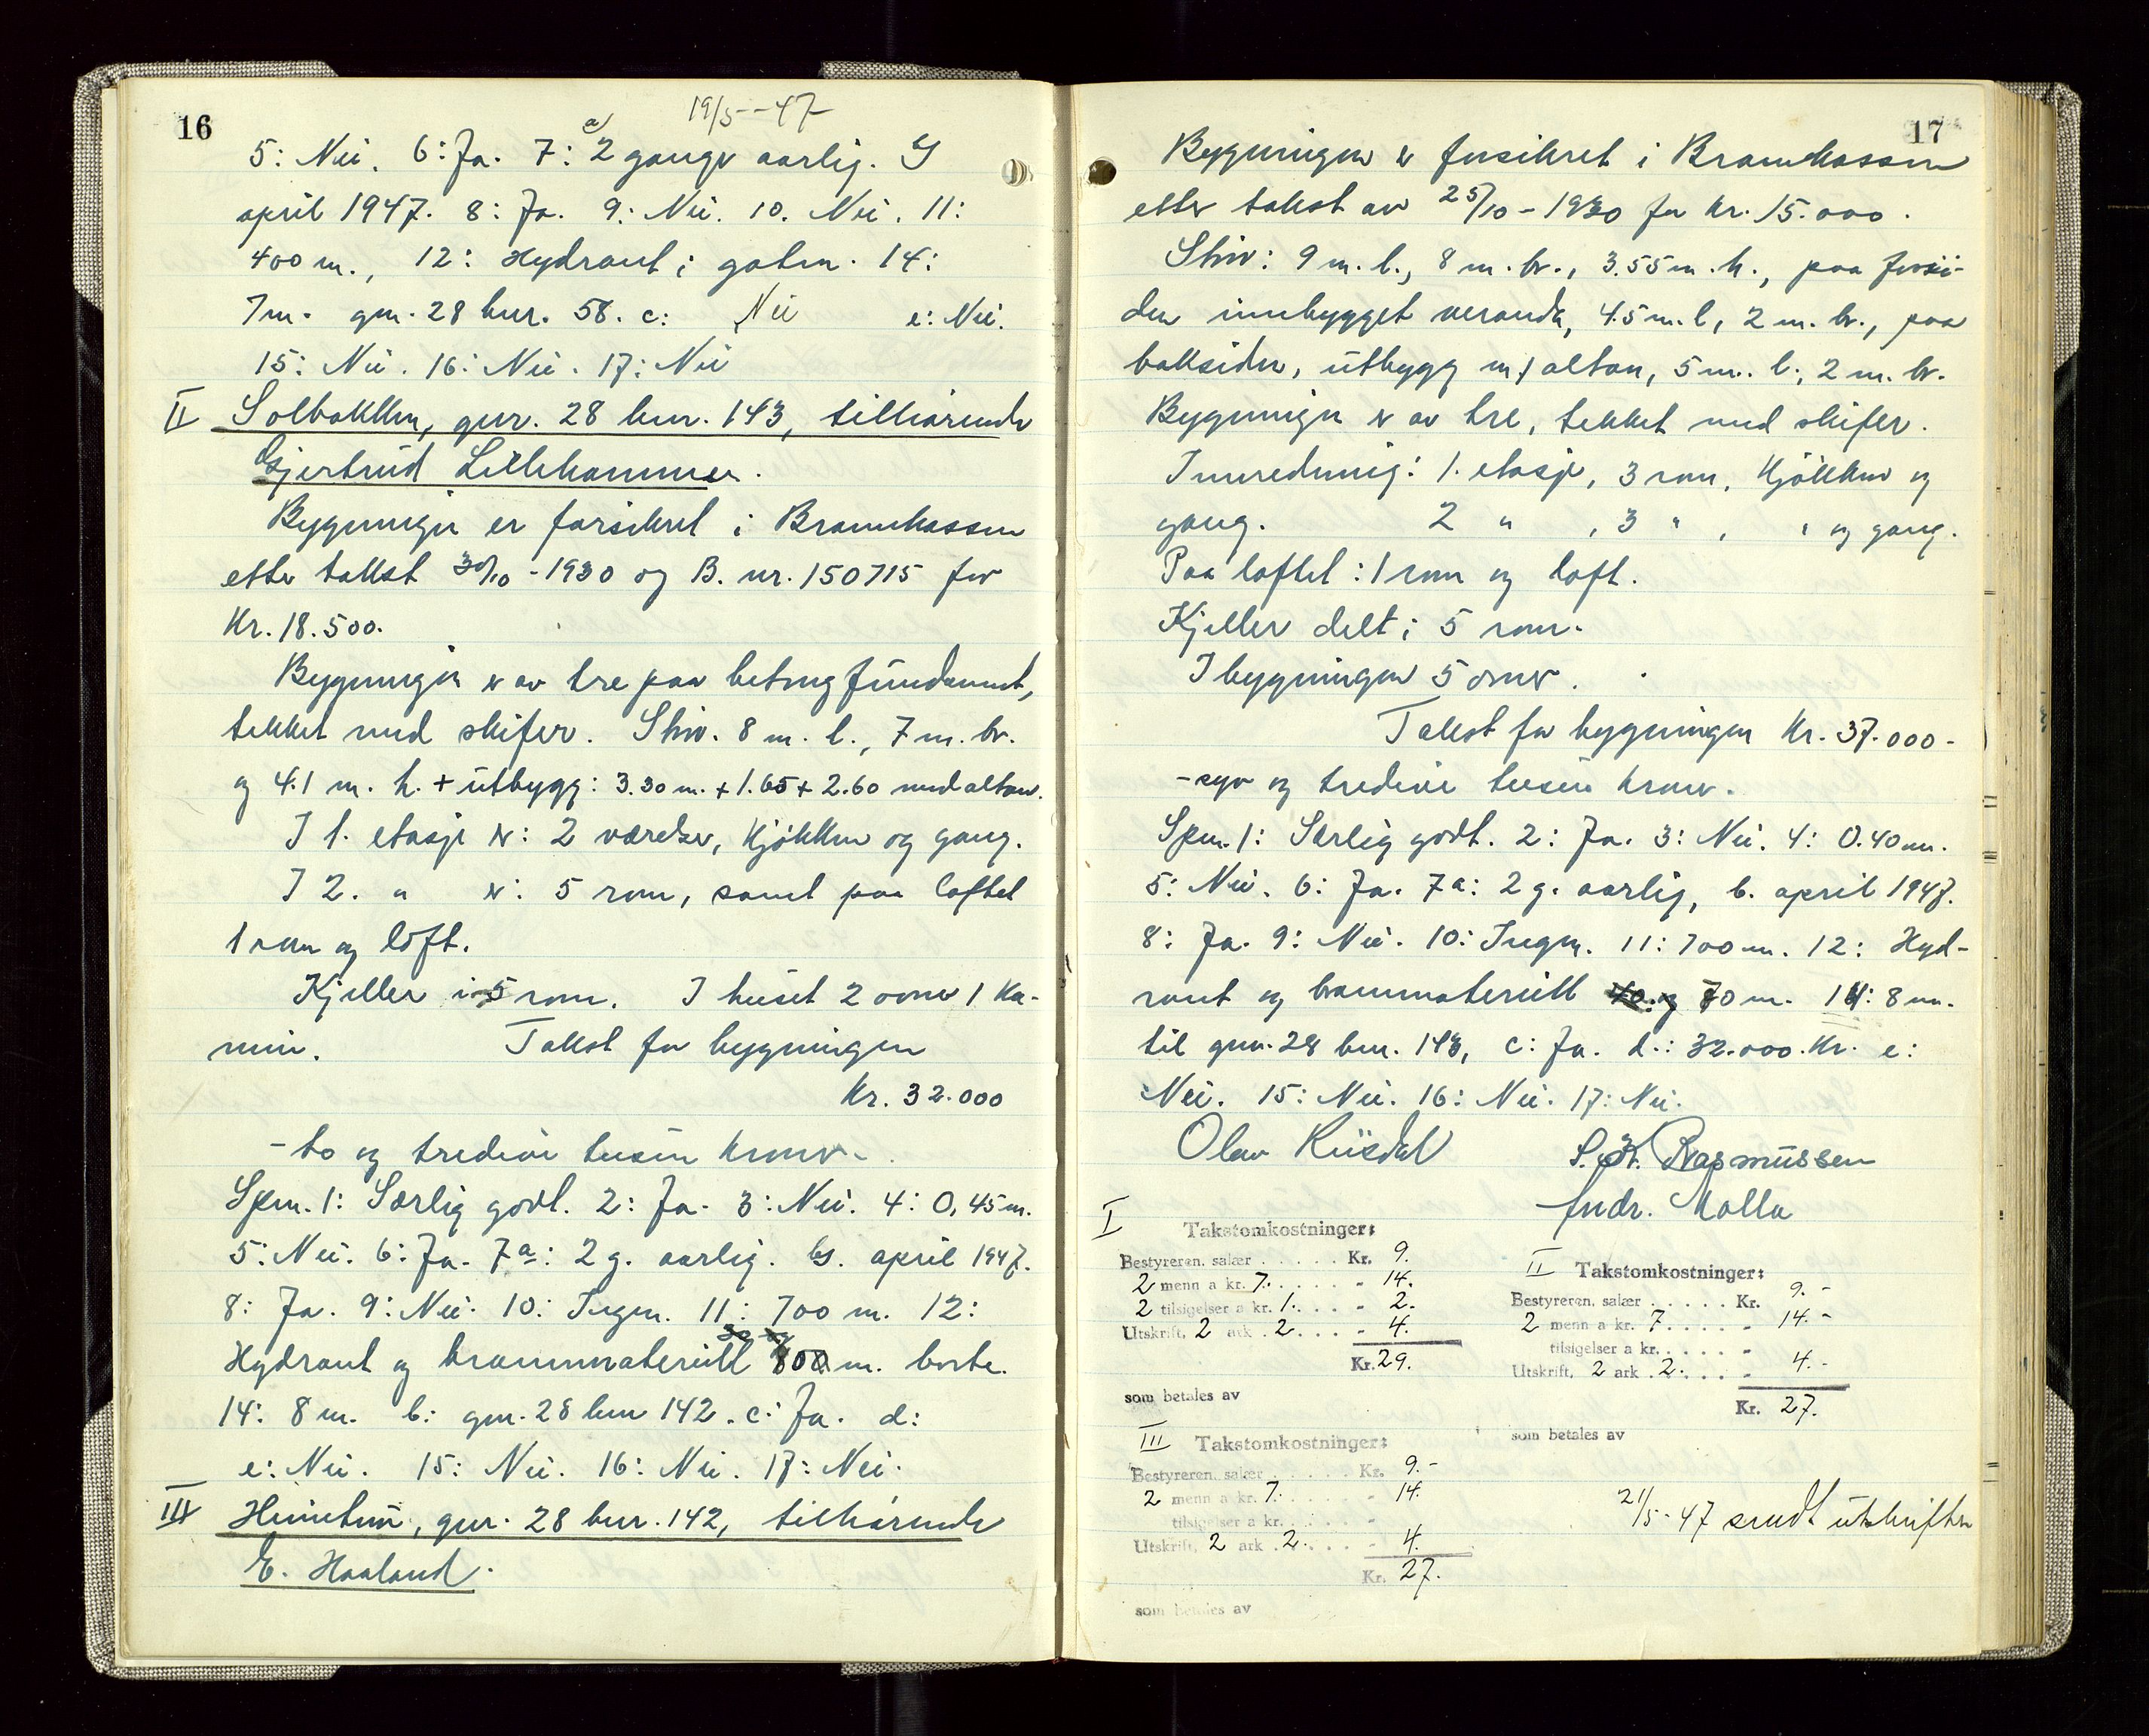 16
19/5--47
5: Nei. 6: Ja. 7: a) 2 gange aarlig.
april 1947. 8: Ja. 9: Nei. 10. Nei. 11:
400 m., 12: Hydrant i gaten. 14:
7m. gnr. 28 bnr. 58. c: Nei e: Nei.
15: Nei. 16: Nei. 17: Nei
II Solbakken, gnr. 28 bnr. 143, tilhörende
Gjertrud Lillehammer.
Bygningen er forsikret i Brannkassen
efter takst 30/10 - 1930 og B. nr. 150715 for
Kr. 18.500.
Bygningen er av tre paa betongfundament,
tekket med skifer. Strr. 8 m. l., 7 m. br.
og 4.1 m. h. + utbygg: 3.30 m. + 1.65 + 2.60 med altan.
I 1. etasje er: 2 værelser, kjökken og gang.
I 2. " er: 5 rom, samt paa loftet
1 rom og loft.
Kjeller i 5 rom. I huset 2 ovner 1 ka-
min. Takst for bygningen
Kr. 32.000
- to og tredive tusen kroner -.
Spm. 1: Særlig godt. 2: Ja. 3: Nei. 4: 0,45 m.
5: Nei. 6: Ja. 7a: 2 g. aarlig. b. april 1947.
8: Ja. 9: Nei. 10: Ingen. 11: 700 m. 12:
Hydrant og brannmateriell m. borte.
14: 8 m. b: gnr. 28 bnr 142. c: Ja. d:
e: Nei. 15: Nei. 16: Nei. 17: Nei.
III Heimtun, gnr. 28 bnr. 142, tilhörende
E. Haaland.
17
Bygningen er forsikret i Brannkassen
efter takst av 25/10 - 1930 for kr. 15.000.
Strr: 9 m. l., 8 m. br., 3.55 m. h., paa forsi-
den innbygget veranda, 4.5 m. l, 2 m. br., paa
baksiden, utbygg m/ altan, 5 m. l., 2 m. br.
Bygningen er av tre, tekket med skifer.
Innredning: 1. etasje, 3 rom, kjökken og
gang. 2 " , 3 " , " og gang.
Paa loftet: 1 rom og loft.
Kjeller delt i 5 rom.
I bygningen 5 ovner.
Takst for bygningen Kr. 37.000-
- syv og tredive tusen kroner.
Spm. 1: Særlig godt. 2: Ja. 3: Nei. 4: 0.40 m.
5: Nei. 6: Ja. 7a: 2 g. aarlig, b. april 1947.
8: Ja. 9: Nei. 10: Ingen. 11: 700 m. 12: Hyd-
rant og brannmateriell 70 m. 14: 8 m.
til gnr. 28 bnr. 143, c: Ja. d.: 32.000. Kr. e:
Nei. 15: Nei. 16: Nei. 17: Nei.
Olav Riisdal
Rasmussen
Andr. Molla
I Takstomkostninger:
Bestyreren. salær ..... Kr. 9.
2 menn a kr. 7. .... - 14.
2 tilsigelser a kr. 1. ... - 2.
Utskrift, 2 ark . 2 .... - 4.
Kr. 29.
som betales av
II Takstomkostninger:
Bestyreren. salær ..... Kr. 9.-
2 menn a kr. 7 ..... - 14.-
tilsigelser a kr. .... -
Utskrift, 2 ark . 2. ... - 4.-
Kr. 27.
som betales av
III Takstomkostninger:
Bestyreren. salær ..... Kr. 9.-
2 menn a kr. 7. .... - 14.
tilsigelser a kr. .... -
Utskrift, 2 ark . 2. ... - 4.
Kr. 27.
som betales av
21/5-47 sendt utskriften